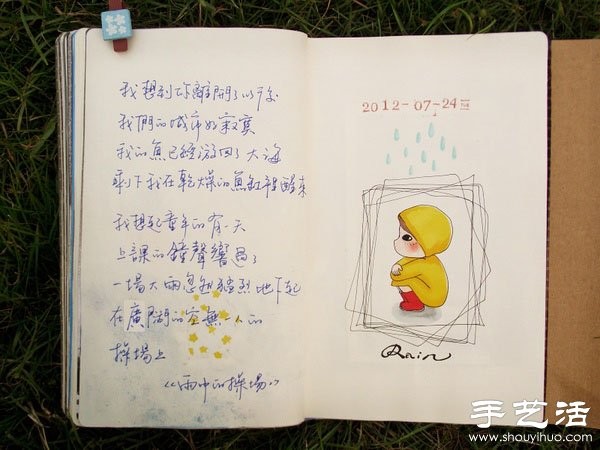 我想到你離開了以後
我們的城市好寂寞
我的魚已經游回了大海
剩下我在乾燥的魚缸裡醒來
我想起童年的有一天
上課的鐘聲響過了
一場大雨忽然猛烈地下起
在廣闊的空無一人的
操場上
《雨中的操場》
2012-07-24
Rain
手艺活
www.shouyihuo.com